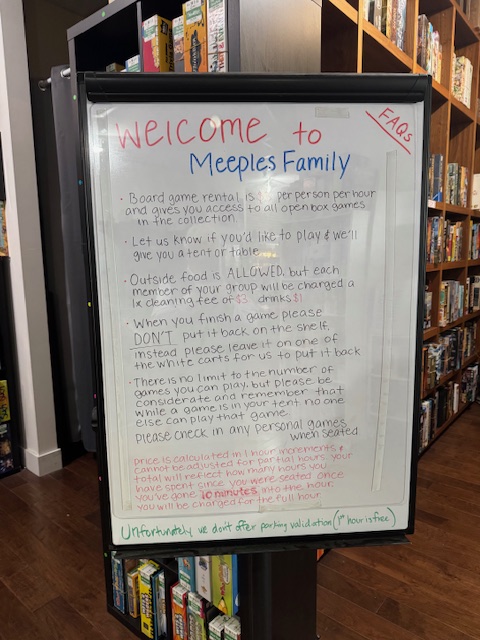 FAQs
WELCOME to
Meeples Family
• Board game rental is per person per hour
and gives you access to all open box games
in the collection
• Let us know if you'd like to play & we'll
give you a tent or table
• Outside food is ALLOWED, but each
member of your group will be charged a
1x cleaning fee of $3 drinks $1
• When you finish a game please
DON'T put it back on the shelf,
instead please leave it on one of
the white carts for us to put it back
• There is no limit to the number of
games you can play, but please be
considerate and remember that
while a game is in your tent, no one
else can play that game.
please check in any personal games
when seated
price is calculated in 1 hour increments &
cannot be adjusted for partial hours. your
total will reflect how many hours you
have spent since you were seated. once
you've gone 10 minutes into the hour
you will be charged for the full hour
Unfortunately we don't offer parking validation (1st hour is free)